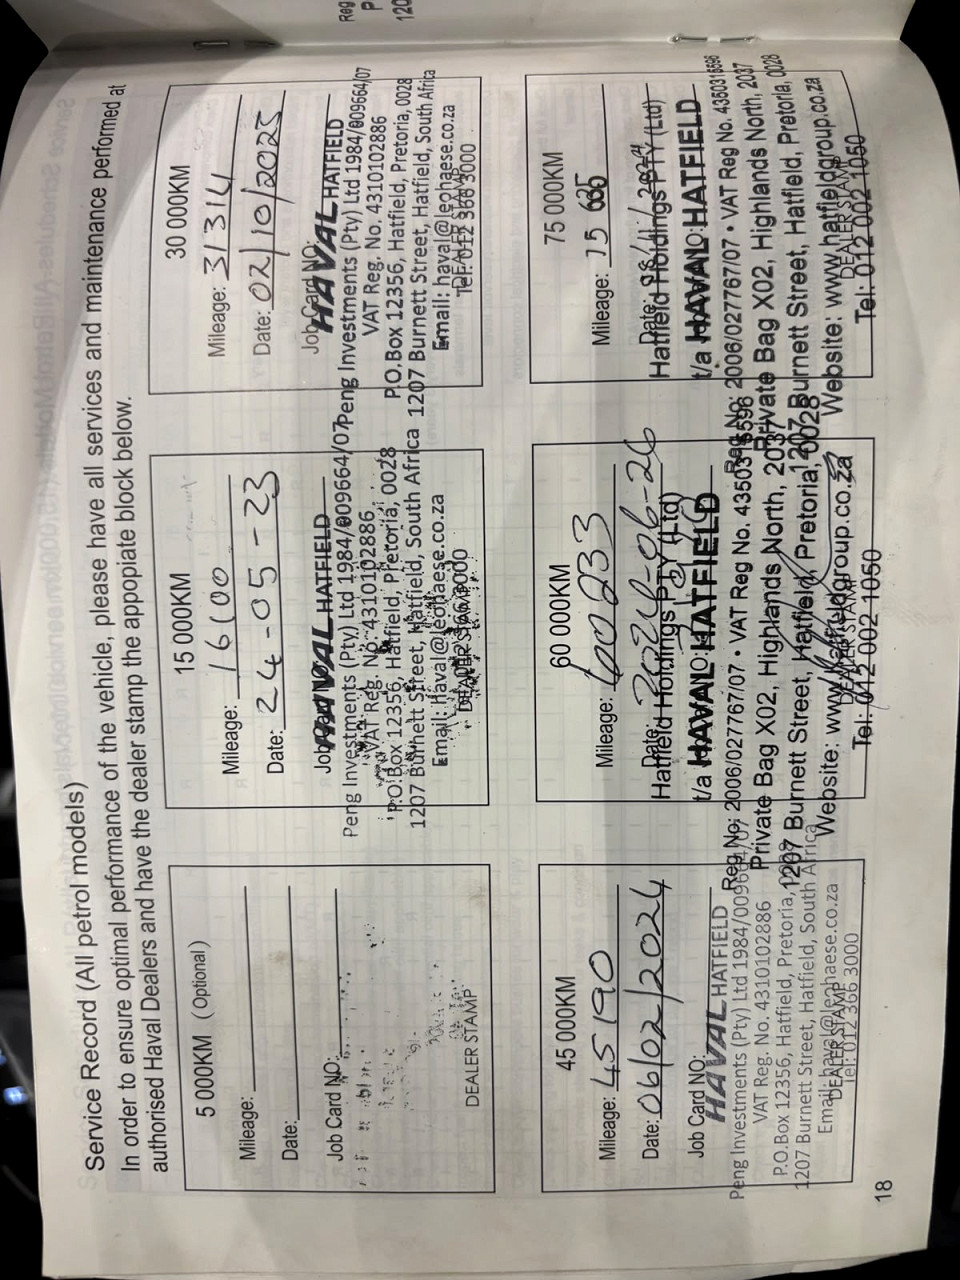 Service Record (All petrol models)
In order to ensure optimal performance of the vehicle, please have all services and maintenance performed at
authorised Haval Dealers and have the dealer stamp the appopiate block below.
5 000KM (Optional)
Mileage:
Date:
Job Card NO:
DEALER STAMP
15 000KM
Mileage: 16100
Date: 24-05-23
HAVAL HATFIELD
Peng Investments (Pty) Ltd 1984/009664/07
VAT Reg. No. 4310102886
P.O.Box 12356, Hatfield, Pretoria, 0028
1207 Burnett Street, Hatfield, South Africa
Email: haval@leohaese.co.za
DEALER STAMP
30 000KM
Mileage: 31314
Date: 02/10/2025
Job Card NO:
HAVAL HATFIELD
Peng Investments (Pty) Ltd 1984/009664/07
VAT Reg. No. 4310102886
P.O.Box 12356, Hatfield, Pretoria, 0028
1207 Burnett Street, Hatfield, South Africa
Email: haval@leohaese.co.za
DEALER STAMP
Tel: 012 366 3000
45 000KM
Mileage: 45190
Date: 06/02/2024
Job Card NO:
HAVAL HATFIELD
Peng Investments (Pty) Ltd 1984/009664/07
VAT Reg. No. 4310102886
P.O.Box 12356, Hatfield, Pretoria, 0028
1207 Burnett Street, Hatfield, South Africa
Email: haval@leohaese.co.za
DEALER STAMP
Tel: 012 366 3000
60 000KM
Mileage: 60033
Date: 2024-06-26
Hatfield Holdings PTY (Ltd)
t/a HAVAL HATFIELD
Reg No: 2006/027767/07 • VAT Reg No. 4360316596
Private Bag X02, Highlands North, 2037
1207 Burnett Street, Hatfield, Pretoria, 0028
Website: www.hatfieldgroup.co.za
DEALER STAMP
Tel: 012 002 1050
75 000KM
Mileage: 15 635
Date:
Hatfield Holdings PTY (Ltd)
t/a HAVAL HATFIELD
Reg No: 2006/027767/07 • VAT Reg No. 4360316596
Private Bag X02, Highlands North, 2037
1207 Burnett Street, Hatfield, Pretoria, 0028
Website: www.hatfieldgroup.co.za
DEALER STAMP
Tel: 012 002 1050
18